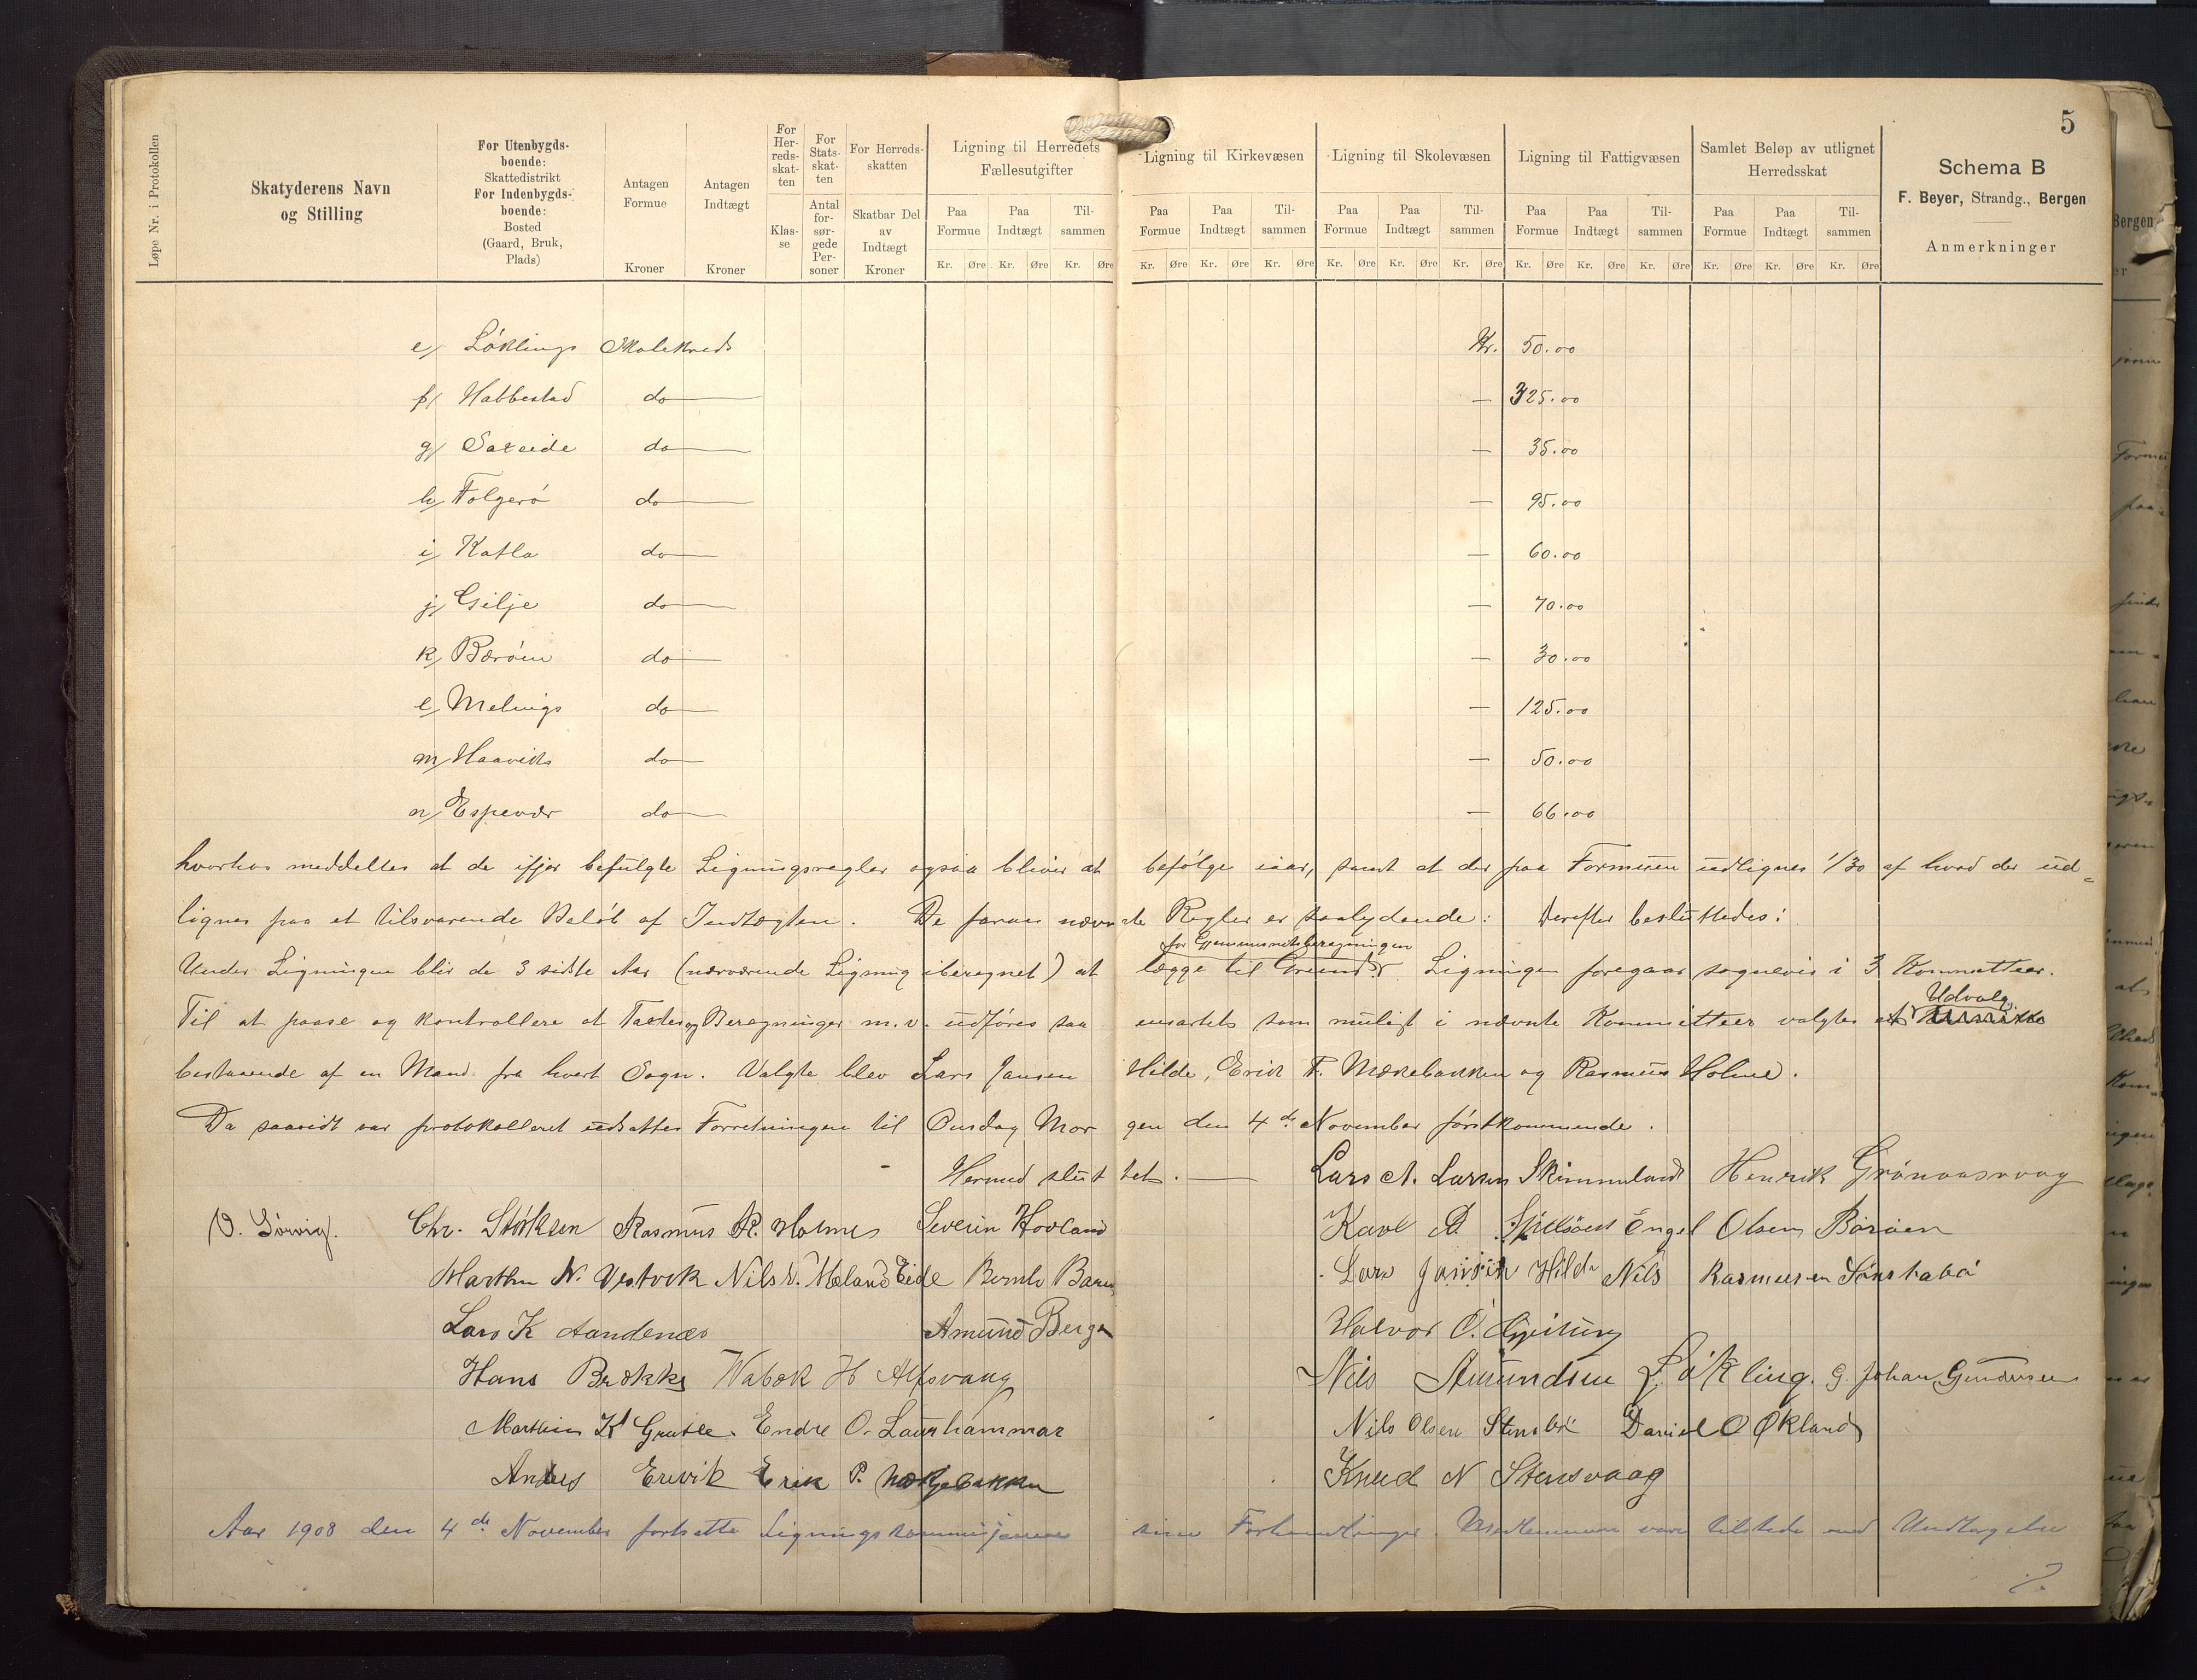 5
Løpe Nr. i Protokollen
Skatyderens Navn og Stilling
For Utenbygdsboende: Skattedistrikt For Indenbygdsboende: Bosted (Gaard, Bruk, Plads)
Antagen Formue Kroner
Antagen Indtægt Kroner
For Herredsskatten Klasse
For Statsskatten Antal forsørgede Personer
For Herredsskatten Skatbar Del av Indtægt Kroner
Ligning til Herredets Fællesutgifter
Paa Formue Paa Indtægt Tilsammen
Kr. Øre Kr. Øre Kr. Øre
Ligning til Kirkevæsen
Paa Formue Paa Indtægt Tilsammen
Kr. Øre Kr. Øre Kr. Øre
Ligning til Skolevæsen
Paa Formue Paa Indtægt Tilsammen
Kr. Øre Kr. Øre Kr. Øre
Ligning til Fattigvæsen
Paa Formue Paa Indtægt Tilsammen
Kr. Øre Kr. Øre Kr. Øre
Samlet Beløp av utlignet Herredsskat
Paa Formue Paa Indtægt Tilsammen
Kr. Øre Kr. Øre Kr. Øre
Schema B
F. Beyer, Strandg., Bergen
Anmerkninger
e/ Løklings Skolekreds Kr. 50.00
f/ Habbestad do — 325.00
g/ Sateide do — 35.00
h/ Folgerö do — 95.00
i/ Katla do — 60.00
j/ Gilje do — 70.00
k/ Börøen do — 30.00
l/ Melings do — 125.00
m/ Haaviks do — 50.00
n/ Espevær do — 66.00
hvorhos meddeltes at de ifjor befulgte Ligningsregler ogsaa bliver at befølge iaar, samt at der paa Formuen udlignes 1/30 af hvad der ud=
lignes paa et tilsvarende Beløb af Indtægten. De foran nævnte Regler er saalydende: Derefter besluttedes:
for Gjennemsnitsberegningen
Under Ligningen blir de 3 sidste Aar (nærværende Ligning iberegnet) at lægge til Grund. Ligningen foregaar sognevis i 3 Kommitteer.
Udvalg
Til at paase og kontrollere at Taxter og Beregninger m.v. udføres saa ensartet som muligt i nævnte Kommitteer valgtes et
bestaaende af en Mand fra hvert Sogn. Valgte blev Lars Jansen Hilde, Erik F. Mækebakken og Rasmus Holme.
Da saavidt var protokolleret udsattes Forretningen til Onsdag Morgen den 4de November förstkommende.
Hermed sluttet. — Lars A. Larsen Skimmeland Henrik Grönaasvaag
O. Sørvig. Chr. Störksen Rasmus R. Holme Severin Hovland Karl A. Engel Olsen Böröen
Marthin N. Vestvik Nils N. Mæland Eide Bernh. Lars Jansen Hilde Nils Rasmussen Sönstabö
Lars K Aandenæs Amund Berge Halvor O.
Hans Brække H Alfsvaag Nils Amundsen Løkling. G. Johan Gundersen
Marthin K Grutle. Endre O. Laurhammar Nils Olsen Stensbö Daniel O Økland
Anders Erevik Erik P. Mækjebakken Knud N Stensvaag
Aar 1908 den 4de November fortsatte Ligningskommisjonen sine Forhandlinger. Medlemmene var tilstede med Undtagelse